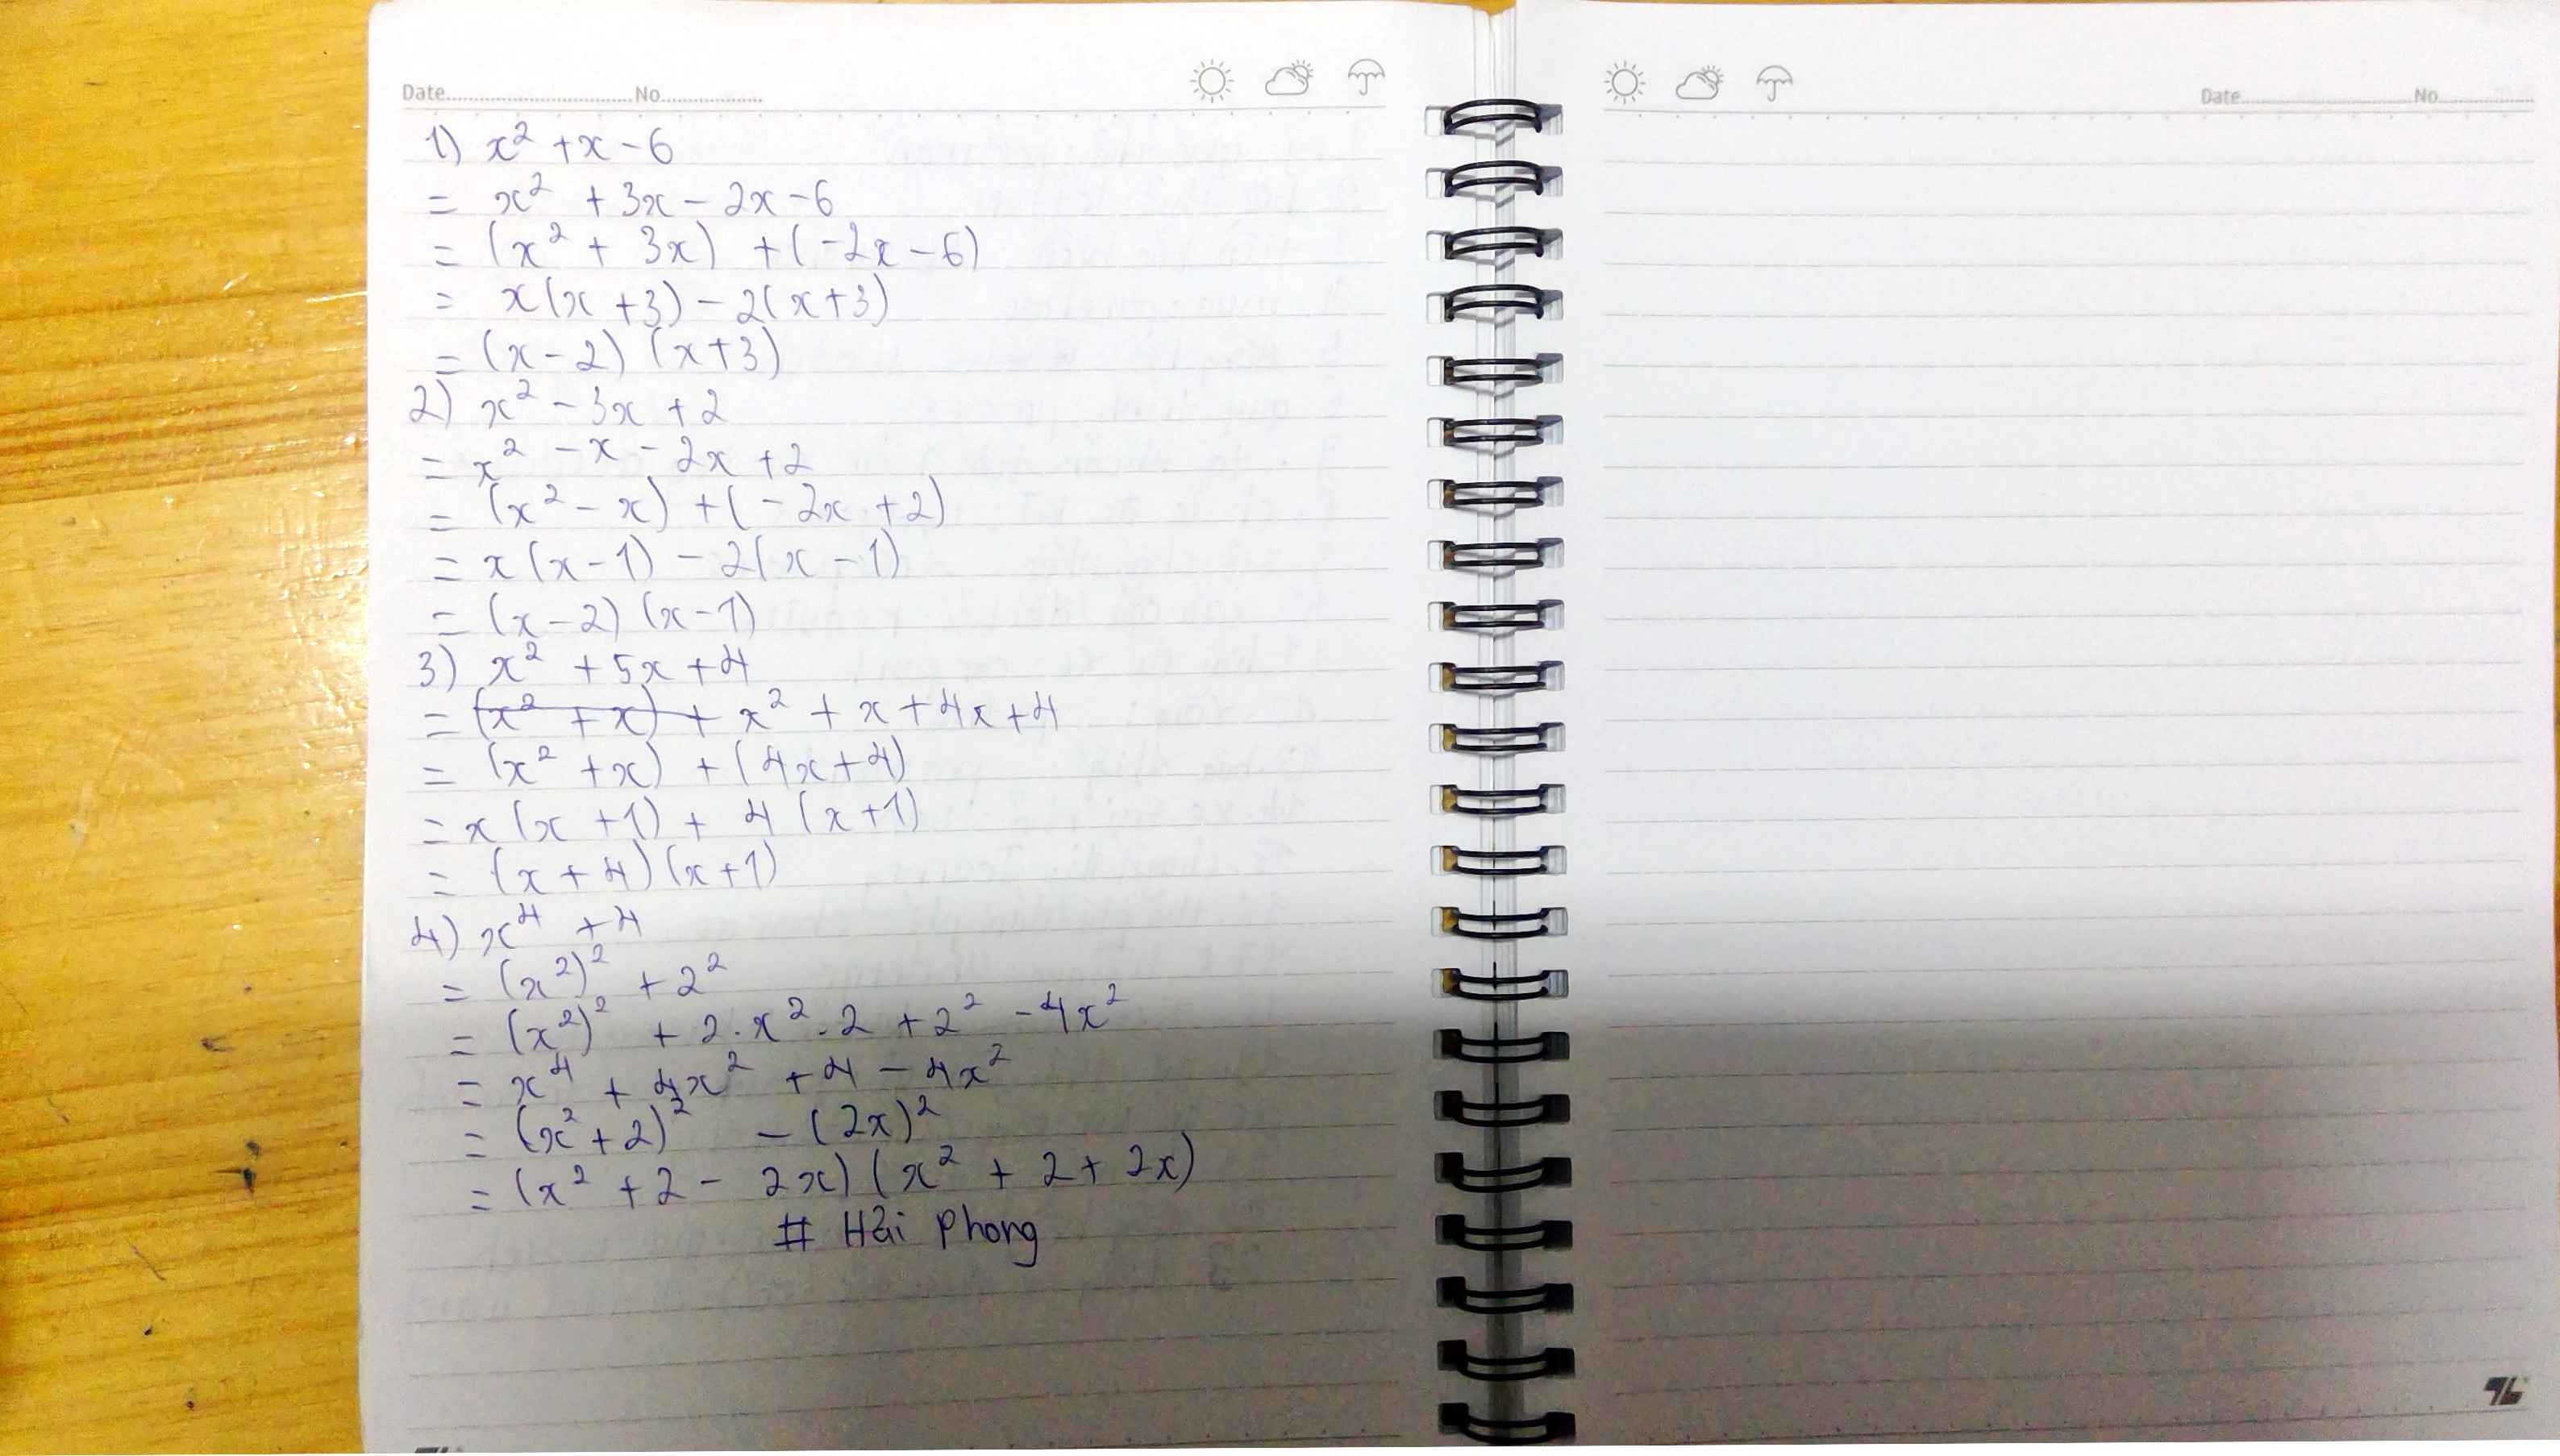 Date No
1) x² + x - 6
= x² + 3x - 2x - 6
= (x² + 3x) + (-2x - 6)
= x(x + 3) - 2(x + 3)
= (x - 2) (x + 3)
2) x² - 3x + 2
= x² - x - 2x + 2
= (x² - x) + (-2x + 2)
= x(x - 1) - 2(x - 1)
= (x - 2) (x - 1)
3) x² + 5x + 4
= (x² + x) + x² + x + 4x + 4
= (x² + x) + (4x + 4)
= x(x + 1) + 4(x + 1)
= (x + 4)(x + 1)
4) x⁴ + 4
= (x²)² + 2²
= (x²)² + 2.x².2 + 2² - 4x²
= x⁴ + 4x² + 4 - 4x²
= (x² + 2)² - (2x)²
= (x² + 2 - 2x)(x² + 2 + 2x)
# Hải Phong
Date No